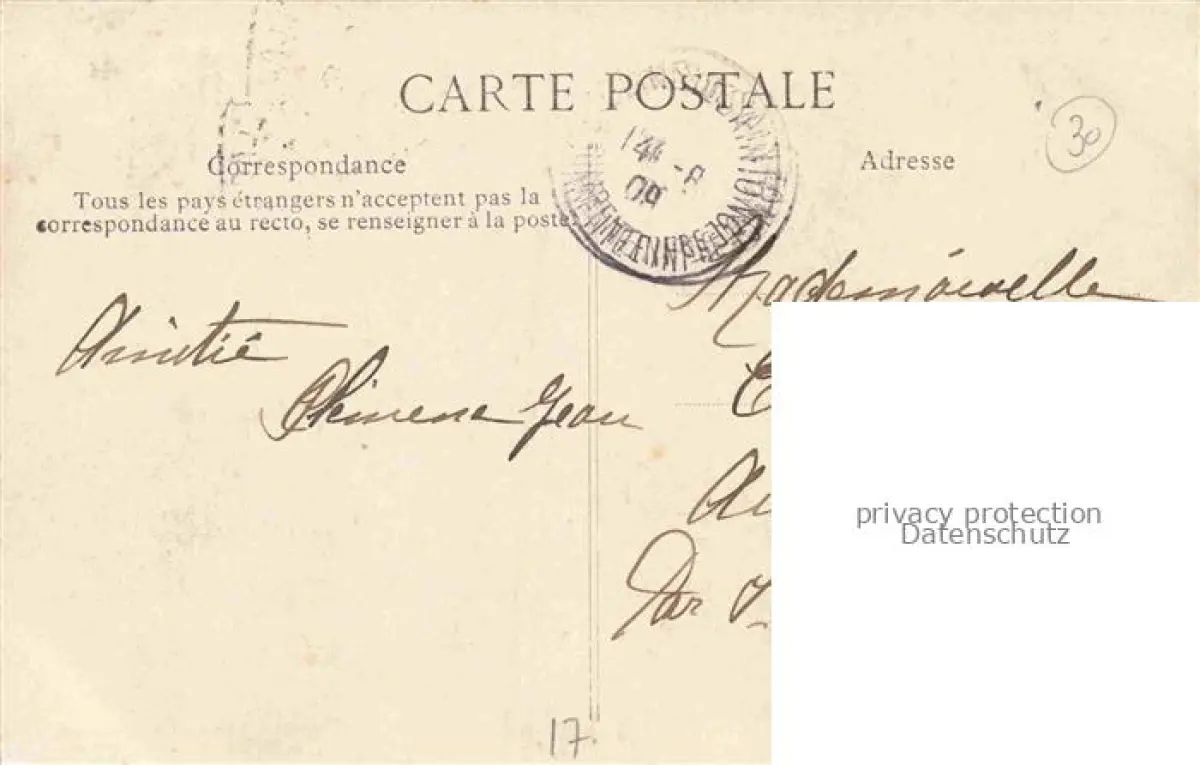 CARTE POSTALE
30
Correspondance
Adresse
Tous les pays étrangers n'acceptent pas la
correspondance au recto, se renseigner à la poste
14 -8
09
Mademoiselle
Amitié
Jean
Par
17.
privacy protection
Datenschutz